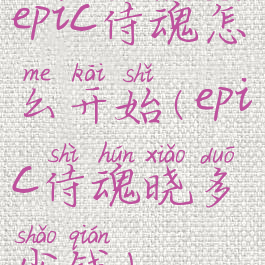 epic侍魂怎
me kāi shǐ
么开始(epi
shì hún xiǎo duō
c侍魂晓多
shǎo qián
少钱)